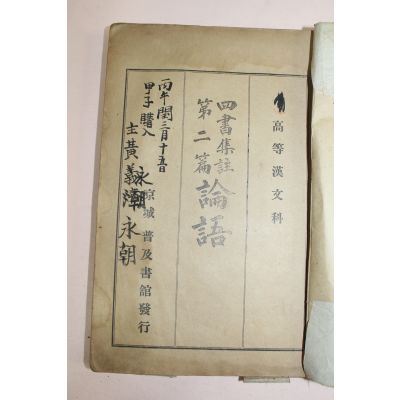 高等漢文科
四書集註
第二篇 論語
京城 普及書館發行
丙午閏三月十五日
甲子購入
主黃義
永朝
永朝